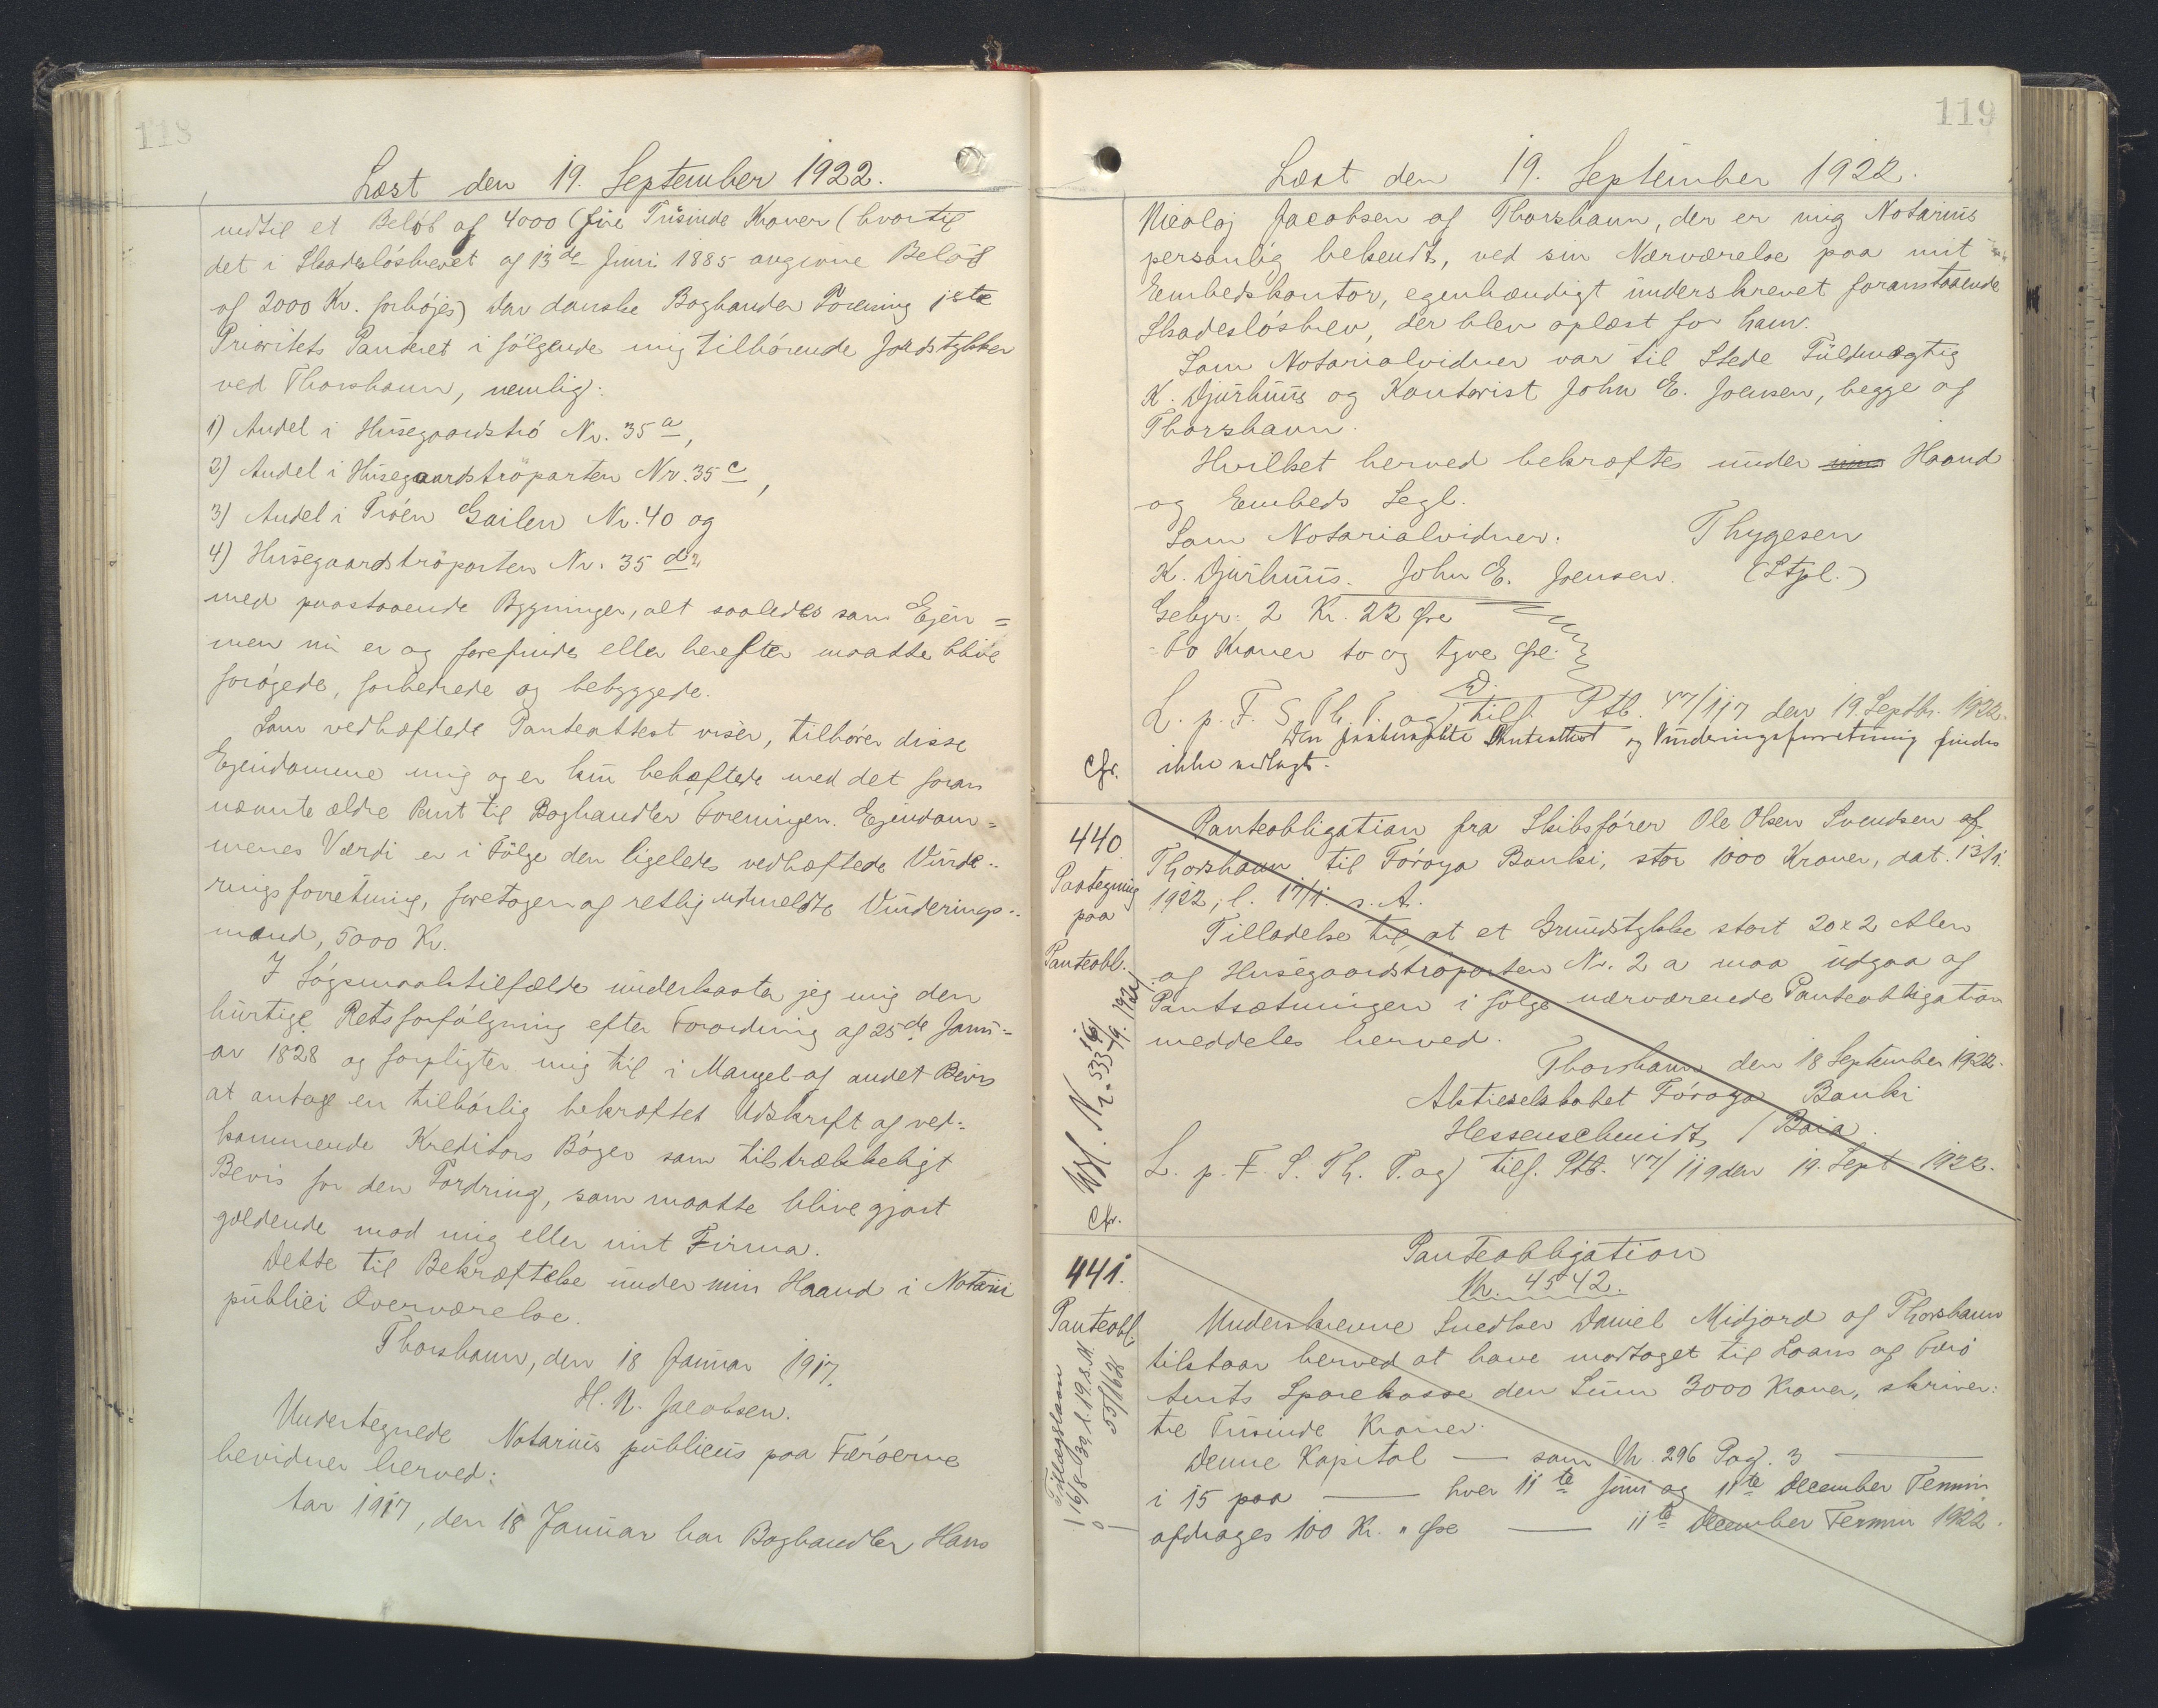 118
Læst den 19. September 1922.
indtil et Beløb af 4000 (fire Tusinde Kroner (hvortil
det i Skadesløsbrevet af 13de Juni 1885 angivne Beløb
af 2000 Kr. forhøjes) den danske Boghandler Forening 1ste
Prioritets Panteret i følgende mig tilhørende Jordstykker
ved Thorshavn, nemlig:
1) Andel i Husegaardstrø Nr. 35 a,
2) Andel i Husegaardstrøparten Nr. 35 c,
3) Andel i Trøen Gailen Nr. 40 og
4) Husegaardstrøparten Nr. 35 d",
med paastaaende Bygninger, alt saaledes som Ejen=
men nu er og forefindes eller herefter maatte blive
forøgede, forbedrede og bebyggede.
Som vedhæftede Panteattest viser, tilhører disse
Ejendomme mig og er kun behæftede med det foran
nævnte ældre Pant til Boghandler Foreningen. Ejendom=
menes Værdi er i Følge den ligeledes vedhæftede Vurde=
ringsforretning, foretagen af retlig udmeldte Vurderings=
mænd, 5000 Kr.
I Søgsmaalstilfælde underkaster jeg mig den
hurtige Retsforfølgning efter Forordning af 25de Janu=
ar 1828 og forpligter mig til i Mangel af andet Bevis
at antage en tilbørlig bekræftet Udskrift af ved=
kommende Kreditors Bøger som tilstrækkeligt
Bevis for den Fordring, som maatte blive gjort
gældende mod mig eller mit Firma.
Dette til Bekræftelse under min Haand i Notarii
publici Overværelse.
Thorshavn, den 18 Januar 1917.
H. N. Jacobsen.
Undertegnede Notarius publicus paa Færøerne
bevidner herved:
Aar 1917, den 18 Januar har Boghandler Hans
119
Læst den 19. September 1922.
Nicolaj Jacobsen af Thorshavn, der er mig Notarius
personlig bekendt, ved sin Nærværelse paa mit
Embedskontor, egenhændigt underskrevet foranstaaende
Skadesløsbrev, der blev oplæst for ham.
Som Notarialvidner var til Stede Fuldmægtig
K. Djurhuus og Kontorist John E. Joensen, begge af
Thorshavn.
Hvilket herved bekræftes under min Haand
og Embeds Segl.
Som Notarialvidner: Thygesen
K. Djurhuus. John E. Joensen. (Stpl.)
Gebyr: 2 Kr. 22 Øre
= To Kroner to og tyve Øre.
D.
L. p. F. S. Th. T. og tilf. Ptb. 47/117 den 19. Septbr. 1922.
Den paaberaabte Panteattest og Vurderingsforretning findes
cfr. ikke vedlagt.
440
Paategning
paa
Panteobl.
Panteobligation fra Skibsfører Ole Olsen Svendsen af
Thorshavn til Føroya Banki, stor 1000 Kroner, dat. 13/1.
1922, l. 17/1. s. A.
Tilladelse til, at et Grundstykke stort 20 x 2 Alen
af Husegaardstrøparten Nr. 2 a maa udgaa af
Pantsætningen i følge nærværende Panteobligation
meddeles herved.
Thorshavn den 18 September 1922.
Aktieselskabet Føroya Banki
Hessenschmidt / Baia.
L. p. F. S. Th. T. og tilf. Ptb. 47/119 den 19. Sept 1922.
cfr.
441.
Panteobl.
Tillægslaan
Panteobligation
Nr. 4542.
Underskrevne Snedker Daniel Midjord af Thorshavn
tilstaar herved at have modtaget til Laans af Færø
Amts Sparekasse den Sum 3000 Kroner, skriver:
tre Tusinde Kroner.
Denne Kapital — som Nr. 296 Pag. 3 —
i 15 paa — hver 11te Juni og 11te December Termin
afdrages 100 Kr. " Øre — 11te December Termin 1922.